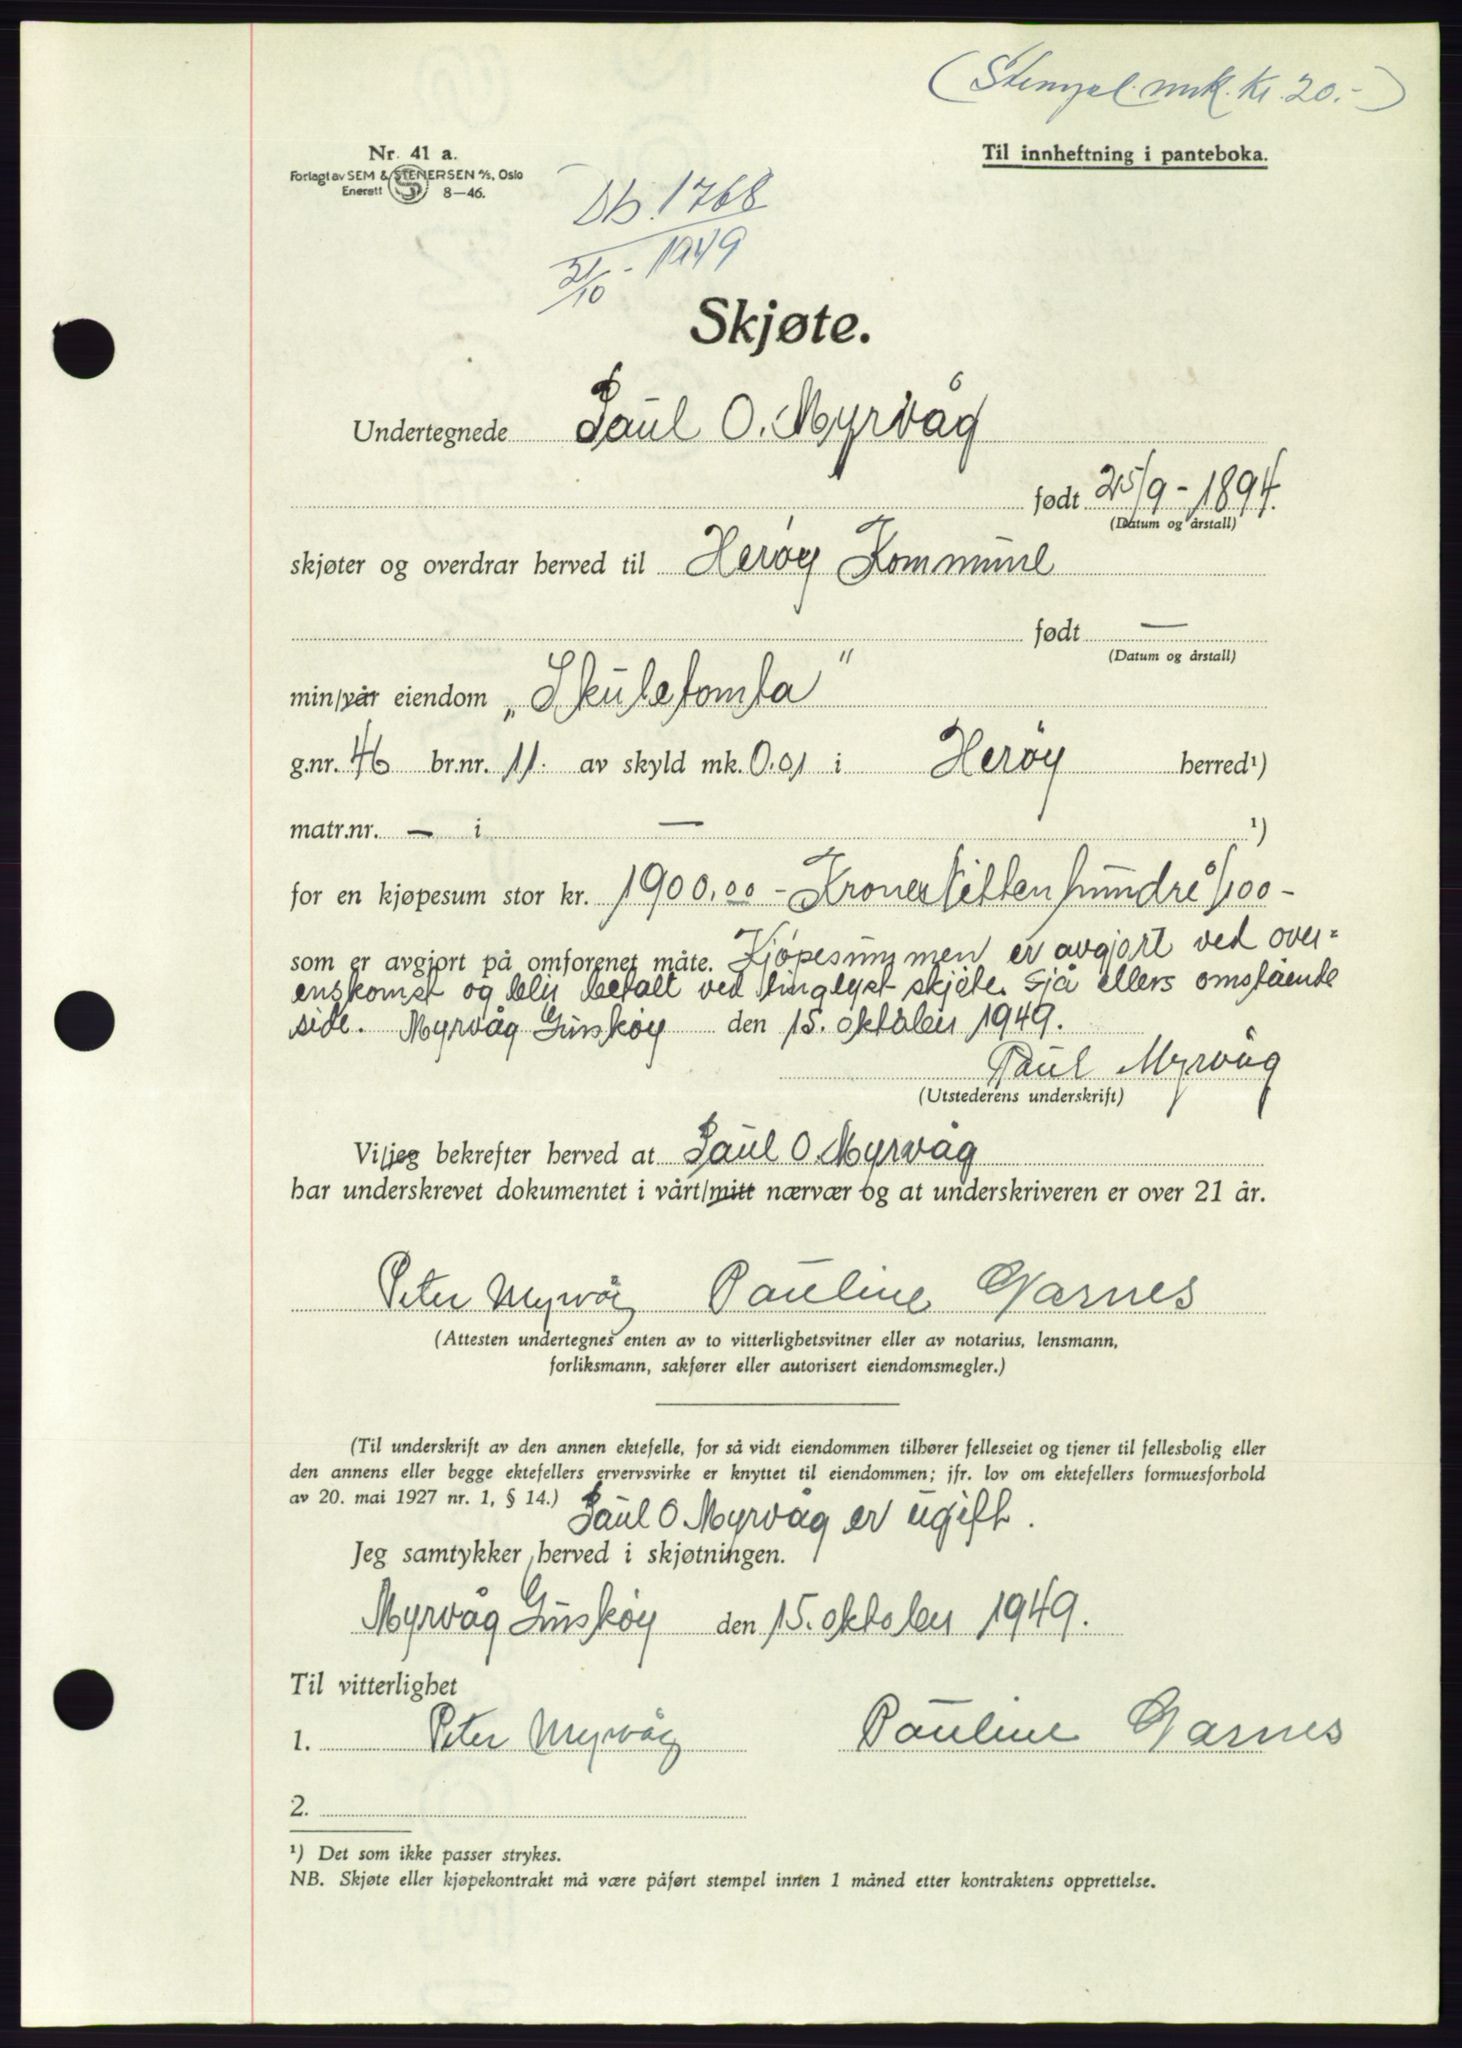 (Stempel.mrk. kr. 20.-)
Nr. 41 a.
Til innheftning i panteboka.
Forlagt av SEM & STENERSEN A/S, Oslo
Enerett 8—46.
Db. 1768
31/10 - 1949
Skjøte.
Undertegnede Paul O. Myrvåg
født 25/9 - 1894.
(Datum og årstall)
skjøter og overdrar herved til Herøy Kommune
født —
(Datum og årstall)
min/vår eiendom „Skuletomta"
g.nr. 46 br.nr. 11. av skyld mk. 0.01 i Herøy herred¹)
matr.nr. — i — ¹)
for en kjøpesum stor kr. 1900,00 - Kroner Nittenhundre 0/100 -
som er avgjort på omforenet måte. Kjøpesummen er avgjort ved over=
enskomst og blir betalt ved tinglyst skjøte. Sjå ellers omstående
side. Myrvåg Gurskøy den 15. oktober 1949.
Paul Myrvåg
(Utstederens underskrift)
Vi/jeg bekrefter herved at Paul O. Myrvåg
har underskrevet dokumentet i vårt/mitt nærvær og at underskriveren er over 21 år.
Peter Myrvåg Pauline Garnes
(Attesten undertegnes enten av to vitterlighetsvitner eller av notarius, lensmann,
forliksmann, sakfører eller autorisert eiendomsmegler.)
(Til underskrift av den annen ektefelle, for så vidt eiendommen tilhører felleseiet og tjener til fellesbolig eller
den annens eller begge ektefellers ervervsvirke er knyttet til eiendommen; jfr. lov om ektefellers formuesforhold
av 20. mai 1927 nr. 1, § 14.) Paul O Myrvåg er ugift.
Jeg samtykker herved i skjøtningen.
Myrvåg Gurskøy den 15. oktober 1949.
Til vitterlighet
1. Peter Myrvåg Pauline Garnes
2.
¹) Det som ikke passer strykes.
NB. Skjøte eller kjøpekontrakt må være påført stempel innen 1 måned etter kontraktens opprettelse.